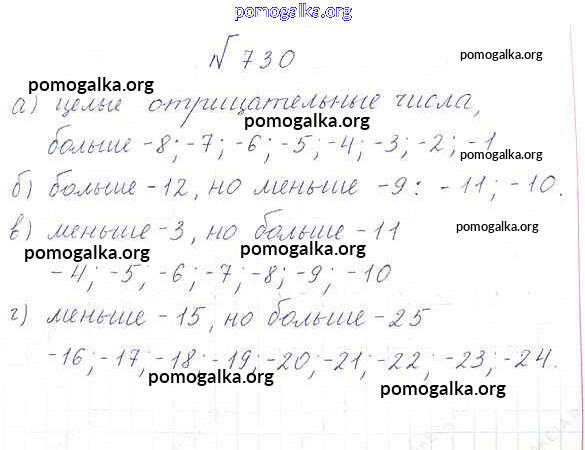 pomogalka.org
№ 730
pomogalka.org
pomogalka.org
а) целые отрицательные числа,
pomogalka.org
больше -8; -7; -6; -5; -4; -3; -2; -1
pomogalka.org
б) больше -12, но меньше -9: -11; -10.
в) меньше -3, но больше -11
pomogalka.org
pomogalka.org
pomogalka.org
-4; -5, -6; -7; -8; -9; -10
г) меньше -15, но больше -25
-16; -17; -18; -19; -20; -21; -22; -23; -24.
pomogalka.org
pomogalka.org